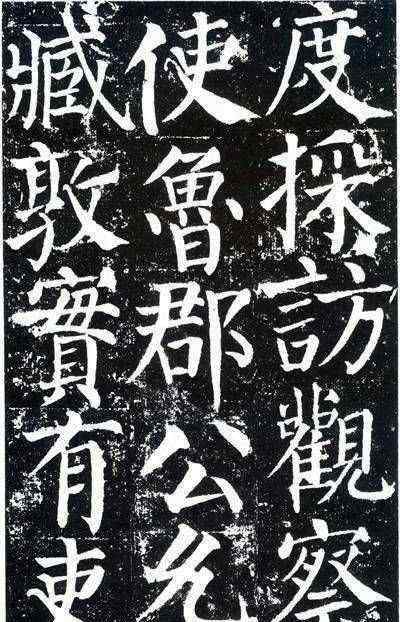 度採訪觀察
使魯郡公允
臧敦實有吏